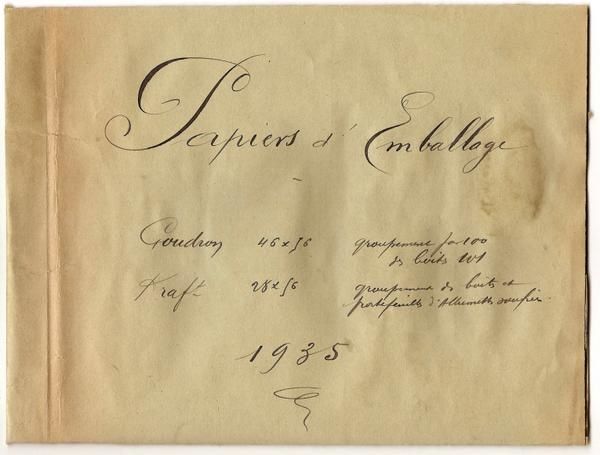 Papiers d'Emballage
Goudron 46 x 56 groupement par 100
de boits 101
Kraft 28 x 56 groupement de boits et
portefeuills d'Allumetts soufrées.
1935